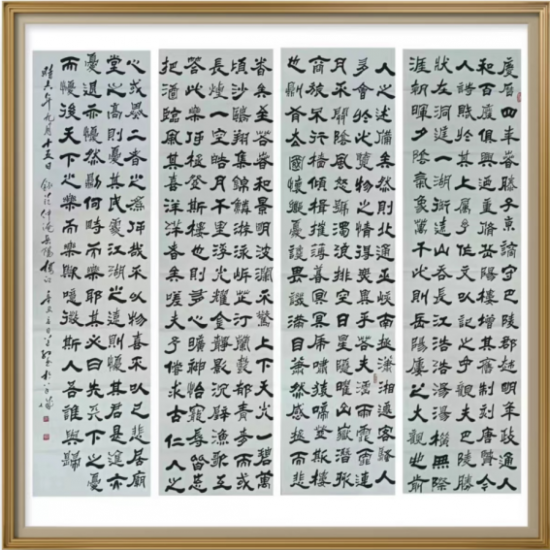 慶曆四年春滕子京謫守巴陵郡越明年政通人
和百廢具興乃重修岳陽樓增其舊制刻唐賢今
人詩賦于其上屬予作文以記之予觀夫巴陵勝
狀在洞庭一湖銜遠山吞長江浩浩湯湯橫無際
涯朝暉夕陰氣象萬千此則岳陽樓之大觀也前
人之述備矣然則北通巫峽南極瀟湘遷客騷人
多會於此覽物之情得無異乎若夫霪雨霏霏連
月不開陰風怒號濁浪排空日星隱曜山嶽潛形
商旅不行檣傾楫摧薄暮冥冥虎嘯猿啼登斯樓
也則有去國懷鄉憂讒畏譏滿目蕭然感極而悲
者矣至若春和景明波瀾不驚上下天光一碧萬
頃沙鷗翔集錦鱗游泳岸芷汀蘭郁郁青青而或
長煙一空皓月千里浮光耀金靜影沉璧漁歌互
答此樂何極登斯樓也則有心曠神怡寵辱皆忘
把酒臨風其喜洋洋者矣嗟夫予嘗求古仁人之
心或異二者之為何哉不以物喜不以己悲居廟
堂之高則憂其民處江湖之遠則憂其君是進亦
憂退亦憂然則何時而樂耶其必曰先天下之憂
而憂後天下之樂而樂歟噫微斯人吾誰與歸
時六年九月十五日 錄范仲淹岳陽樓記 辛丑